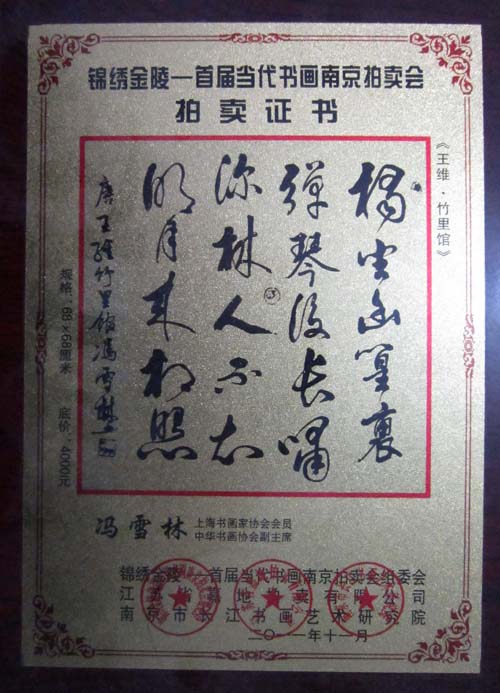 锦绣金陵—首届当代书画南京拍卖会
拍卖证书
《王维·竹里馆》
獨坐幽篁裏
彈琴復長嘯
深林人不知
明月來相照
唐王維竹里館馮雪林
规格：68×68厘米 底价：4000元
冯雪林
上海书画家协会会员
中华书画协会副主席
锦绣金陵—首届当代书画南京拍卖会组委会
江苏省 地拍卖有限公司
南京市长江书画艺术研究院
二〇一一年十一月